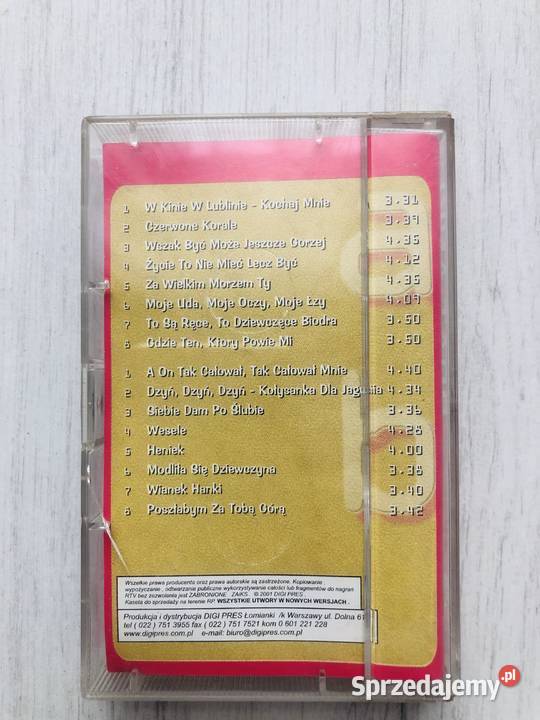 1 W Kinie W Lublinie - Kochaj Mnie 3.31
2 Czerwone Korale 3.39
3 Wszak Być Może Jeszcze Gorzej 4.35
4 Życie To Nie Mieć Lecz Być 4.12
5 Za Wielkim Morzem Ty 4.35
6 Moje Uda, Moje Oczy, Moje Łzy 4.09
7 To Są Ręce, To Dziewczęce Biodra 3.50
8 Gdzie Ten, Ktory Powie Mi 3.50
1 A On Tak Całował, Tak Całował Mnie 4.40
2 Dzyń, Dzyń, Dzyń - Kołysanka Dla Jagusia 4.34
3 Siebie Dam Po Ślubie 3.36
4 Wesele 4.28
5 Heniek 4.00
6 Modliła Się Dziewczyna 3.38
7 Wianek Hanki 3.40
8 Poszłabym Za Tobą Górą 3.42
Wszelkie prawa producenta oraz prawa autorskie są zastrzeżone. Kopiowanie ,
wypożyczanie , odtwarzanie publiczne wykorzystywanie całości lub fragmentów do nagrań
RTV bez zezwolenia jest ZABRONIONE . ZAIKS . ℗ 2001 DIGI PRES .
Kaseta do sprzedaży na terenie RP. WSZYSTKIE UTWORY W NOWYCH WERSJACH .
Produkcja i dystrybucja DIGI PRES Łomianki /k Warszawy ul. Dolna 6
tel ( 022 ) 751 3955 fax ( 022 ) 751 7521 kom 0 601 221 228
www.digipres.com.pl e-mail: biuro@digipres.com.pl
Sprzedajemy.pl